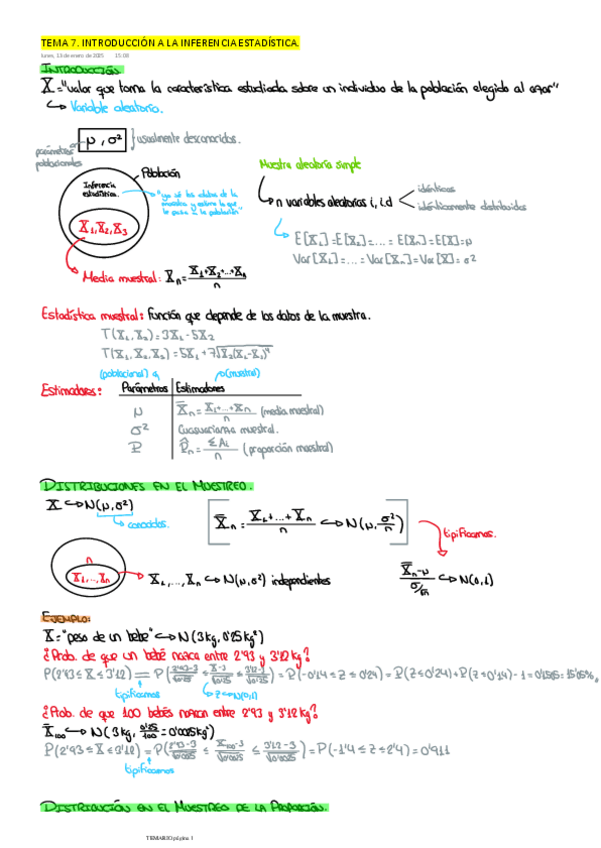 TEMA 7. INTRODUCCIÓN A LA INFERENCIA ESTADÍSTICA.
lunes, 13 de enero de 2025 15:08
INTRODUCCIÓN
X = "valor que toma la característica estudiada sobre un individuo de la población elegido al azar"
↳ Variable aleatoria.
parámetros poblacionales
μ, σ² } usualmente desconocidos.
Población
Inferencia estadística.
X₁, X₂, X₃
Media muestral: X̄ₙ = (X₁+X₂+...+Xₙ)/n
Muestra aleatoria simple
↳ n variables aleatorias i, i.d
idénticamente distribuidas
E[X₁] = E[X₂] = ... = E[Xₙ] = E[X] = μ
Var[X₁] = ... = Var[Xₙ] = Var[X] = σ²
Estadística muestral: función que depende de los datos de la muestra.
T(X₁, X₂) = 3X₁ - 5X₂
(poblacional) (muestral)
Estimadores:
Parámetros | Estimadores
μ | X̄ₙ = (X₁+...+Xₙ)/n (media muestral)
σ² | Cuasivarianza muestral.
P | P̂ₙ = ΣAᵢ/n (proporción muestral)
DISTRIBUCIONES EN EL MUESTREO.
X ↪ N(μ, σ²)
conocidos.
[X̄ₙ = (X₁+...+Xₙ)/n ↪ N(μ, σ²/n)]
tipificamos.
n
X₁,...,Xₙ
X₁,...,Xₙ ↪ N(μ, σ²) independientes
(X̄ₙ-μ)/(σ/√n) ↪ N(0,1)
EJEMPLO:
X = "peso de un bebé" ↪ N(3kg, 0'25kg²)
¿Prob. de que un bebé nazca entre 2'93 y 3'12kg?
tipificamos
Z ↪ N(0,1)
¿Prob. de que 100 bebés nazcan entre 2'93 y 3'12kg?
X̄₁₀₀ ↪ N(3kg, 0'25/100 = 0'0025kg²)
= P(-1'4 ≤ Z ≤ 2'4) = 0'911
tipificamos
DISTRIBUCIÓN EN EL MUESTREO DE LA PROPORCIÓN.
TEMARIO página 1